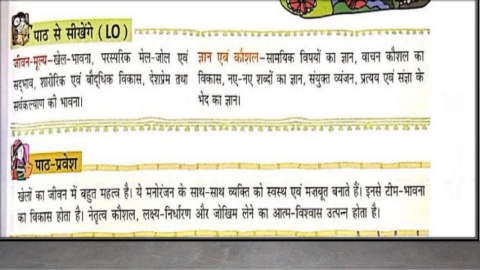 पाठ से सीखेंगे (LO)
जीवन-मूल्य-खेल-भावना, परस्परिक मेल-जोल एवं
सद्भाव, शारीरिक एवं बौद्धिक विकास, देशप्रेम तथा
सर्वकल्याण की भावना।
ज्ञान एवं कौशल-सामयिक विषयों का ज्ञान, वाचन कौशल का
विकास, नए-नए शब्दों का ज्ञान, संयुक्त व्यंजन, प्रत्यय एवं संज्ञा के
भेद का ज्ञान।
पाठ-प्रवेश
खेलों का जीवन में बहुत महत्व है। ये मनोरंजन के साथ-साथ व्यक्ति को स्वस्थ एवं मजबूत बनाते हैं। इनसे टीम-भावना
का विकास होता है। नेतृत्व कौशल, लक्ष्य-निर्धारण और जोखिम लेने का आत्म-विश्वास उत्पन्न होता है।